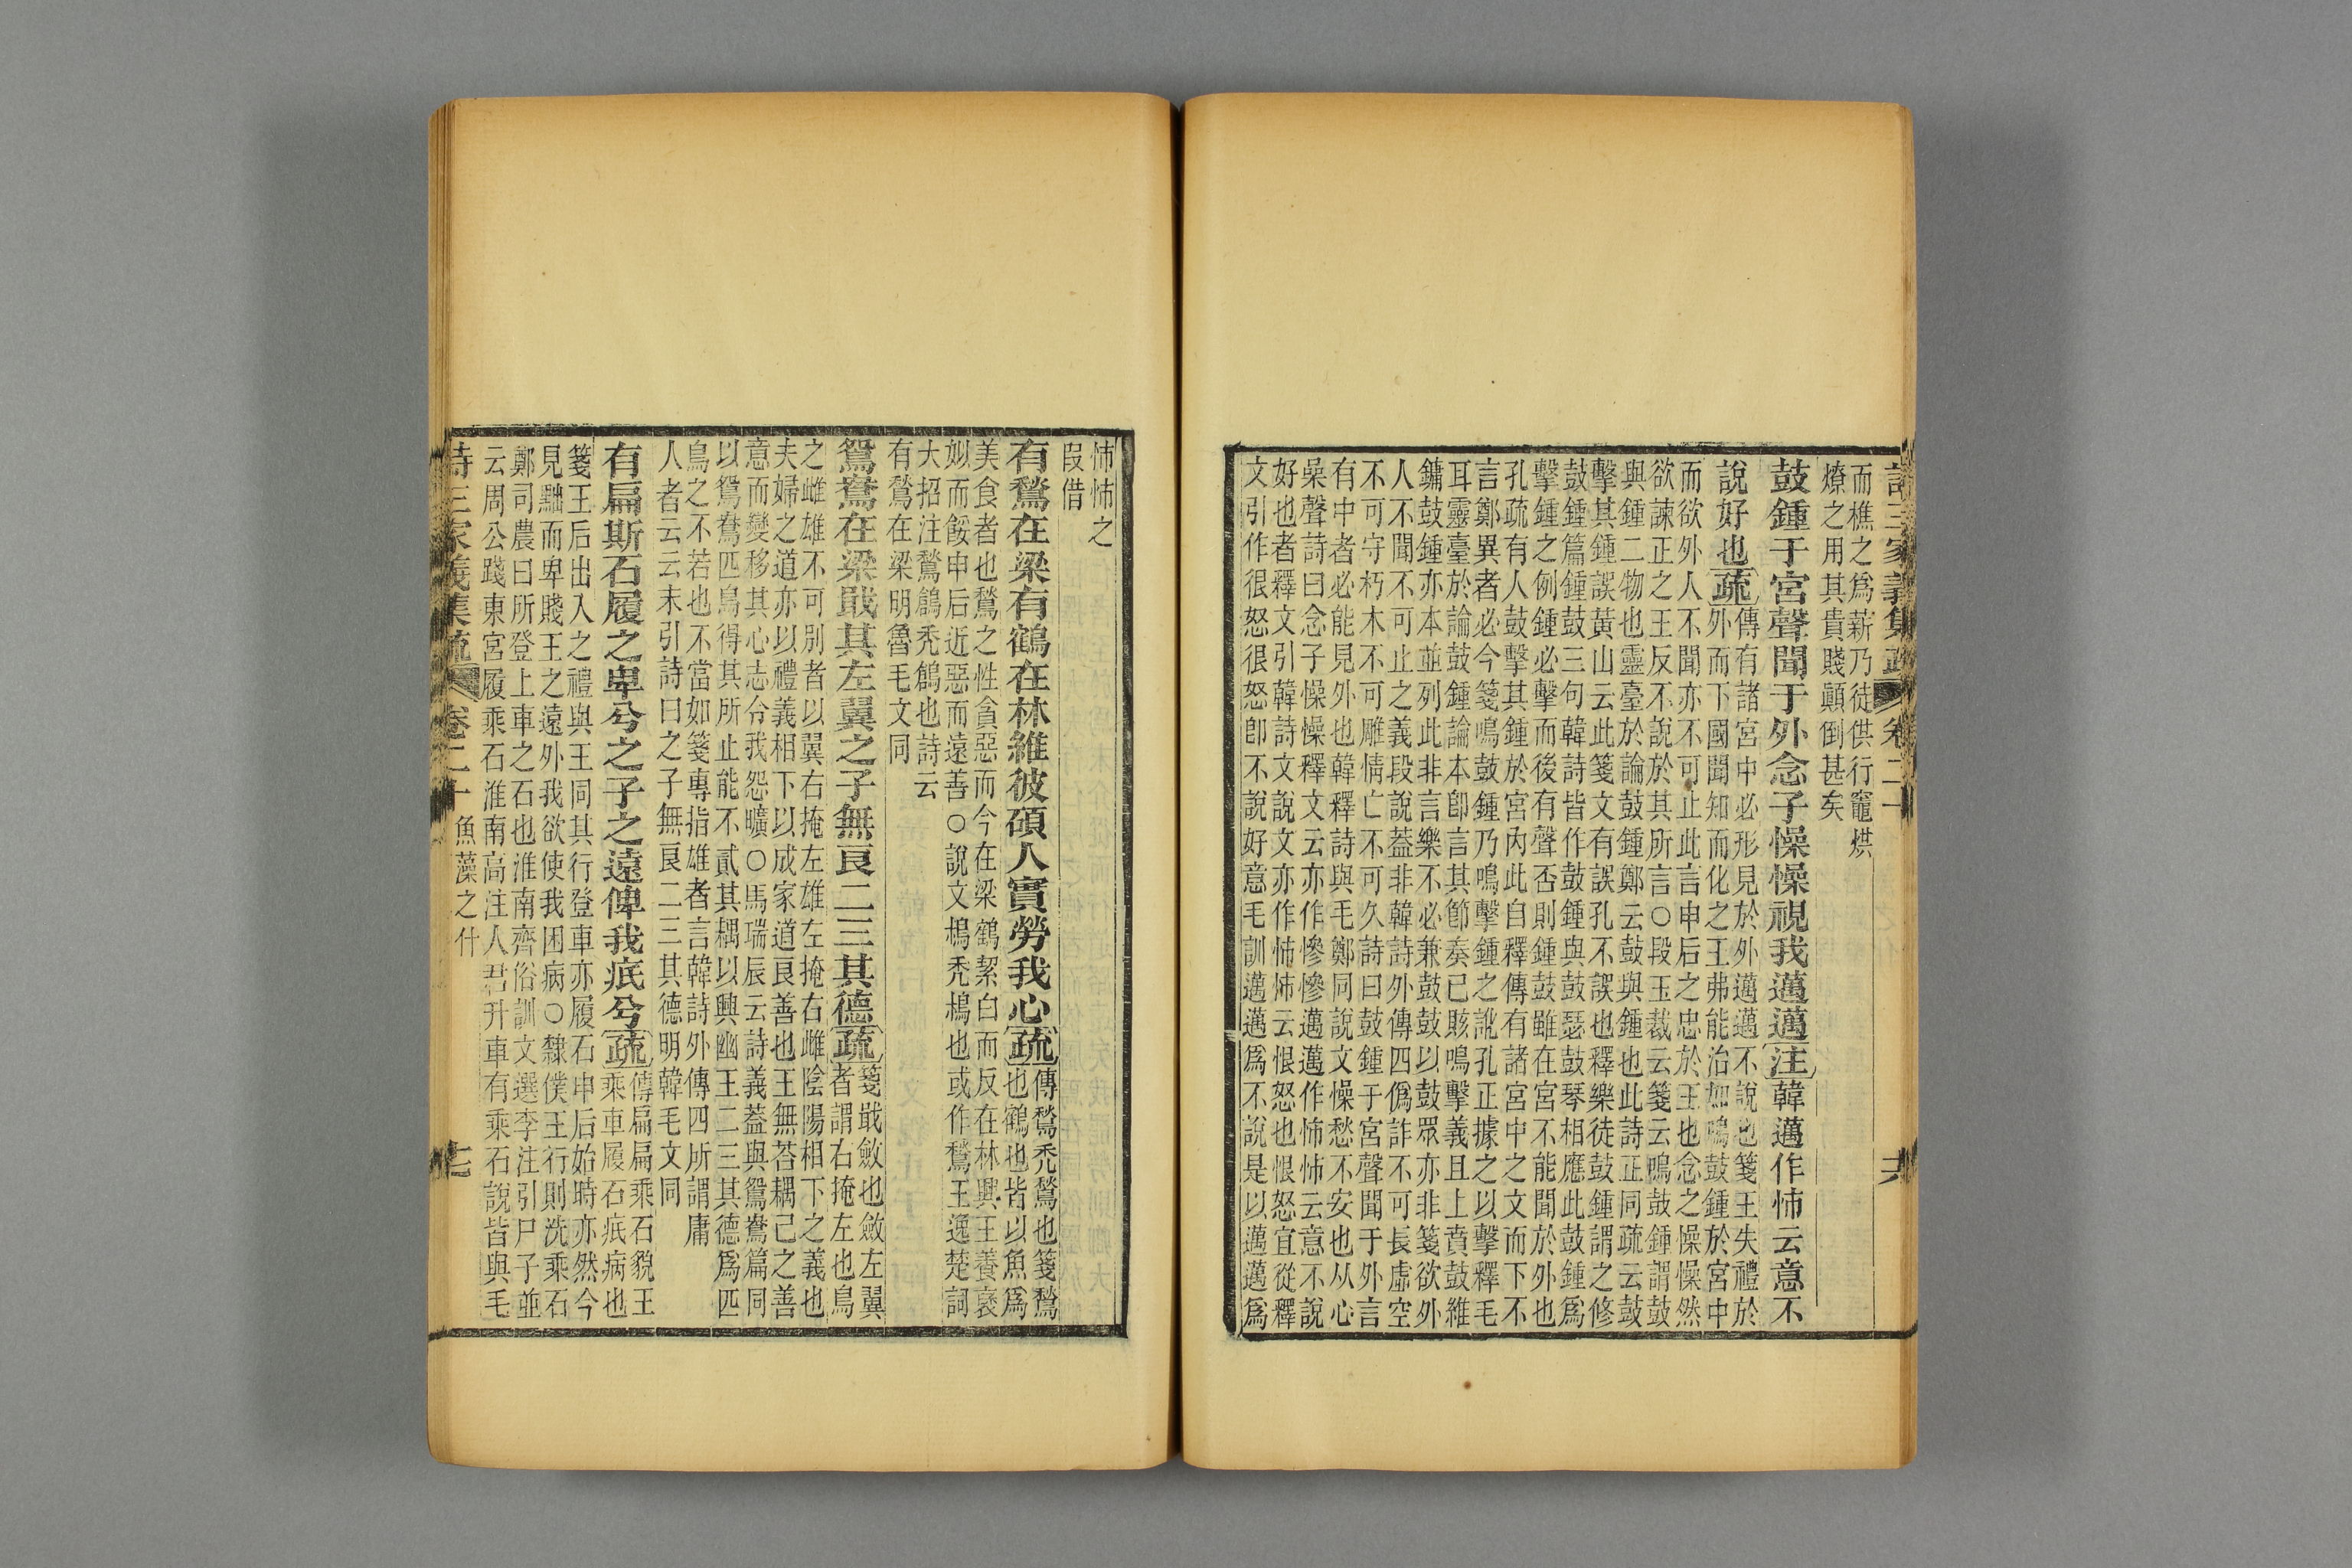 詩三家義集疏 卷二十 六
而樵之爲薪乃徒供行竈烘
燎之用其貴賤顛倒甚矣
鼓鍾于宮聲聞于外念子懆懆視我邁邁注韓邁作怖云意不
說好也疏
傳有諸宮中必形見於外邁邁不說也箋王失禮於
外而下國聞知而化之王弗能治如鳴鼓鍾於宮中
而欲外人不聞亦不可止此言申后之忠於王也念之懆懆然
欲諫正之王反不說於其所言○段玉裁云箋云鳴鼓鍾謂鼓
與鍾二物也靈臺於論鼓鍾鄭云鼓與鍾也此詩正同疏云鼓
擊其鍾誤黃山云此箋文有誤孔不誤也釋樂徒鼓鍾謂之修
鼓鍾篇鍾鼓三句韓詩皆作鼓鍾與鼓瑟鼓琴相應此鼓鍾爲
擊鍾之例鍾必擊而後有聲否則鍾鼓雖在宮不能聞於外也
孔疏有人鼓擊其鍾於宮內此自釋傳有諸宮中之文而下不
言鄭異者必今箋鳴鼓鍾乃鳴擊鍾之訛孔正據之以擊釋毛
耳靈臺於論鼓鍾論本卽言其節奏已賅鳴擊義且上賁鼓維
鏞鼓鍾亦本並列此非言樂不必兼鼓鼓以鼓眾亦非箋欲外
人不聞不可止之義段說蓋非韓詩外傳四僞詐不可長虛空
不可守朽木不可雕情亡不可久詩曰鼓鍾于宮聲聞于外言
有中者必能見外也韓釋詩與毛鄭同說文懆愁不安也从心
喿聲詩曰念子懆懆釋文云亦作慘慘邁邁作怖怖云意不說
好也者釋文引韓詩文說文亦作怖怖云恨怒也恨怒宜從釋
文引作很怒很怒卽不說好意毛訓邁邁爲不說是以邁邁爲
怖怖之
叚借
有鶖在梁有鶴在林維彼碩人實勞我心疏
傳鶖禿鶖也箋鶖
也鶴也皆以魚爲
美食者也鶖之性貪惡而今在梁鶴絜白而反在林興王養褒
姒而餒申后近惡而遠善○說文䳓禿䳓也或作鶖王逸楚詞
大招注鶖鶬禿鶬也詩云
有鶖在梁明魯毛文同
鴛鴦在梁戢其左翼之子無良二三其德疏
箋戢斂也斂左翼
者謂右掩左也鳥
之雌雄不可別者以翼右掩左雄左掩右雌陰陽相下之義也
夫婦之道亦以禮義相下以成家道良善也王無荅耦己之善
意而變移其心志令我怨曠○馬瑞辰云詩義蓋與鴛鴦篇同
以鴛鴦匹鳥得其所止能不貳其耦以興幽王二三其德爲匹
鳥之不若也不當如箋專指雄者言韓詩外傳四所謂庸
人者云云末引詩曰之子無良二三其德明韓毛文同
有扁斯石履之卑兮之子之遠俾我疧兮疏
傳扁扁乘石貌王
乘車履石疧病也
箋王后出入之禮與王同其行登車亦履石申后始時亦然今
見黜而卑賤王之遠外我欲使我困病○隸僕王行則洗乘石
鄭司農曰所登上車之石也淮南齊俗訓文選李注引尸子並
云周公踐東宮履乘石淮南高注人君升車有乘石說皆與毛
詩三家義集疏 卷二十 魚藻之什 七